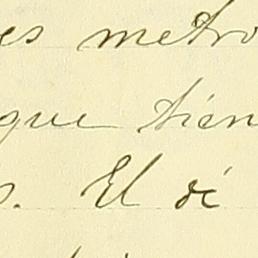 es metro
que tien
s. El di